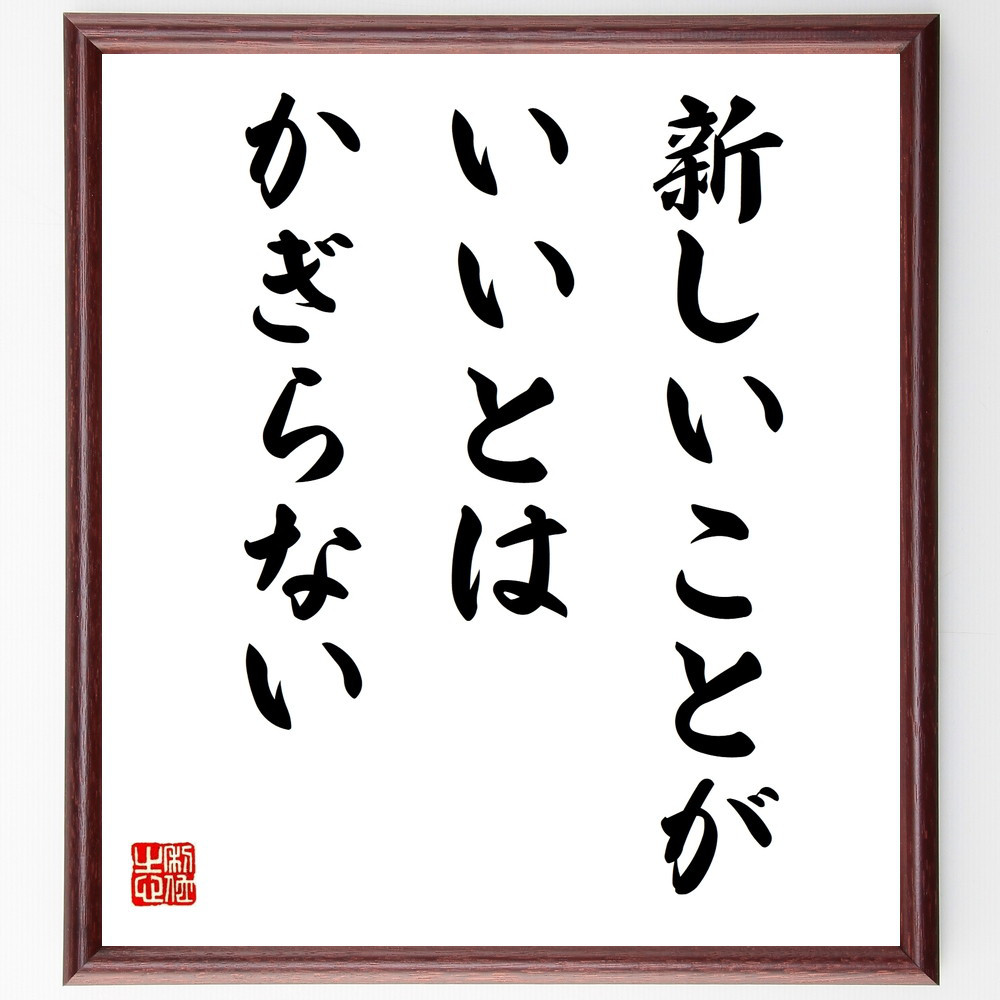 新しいことが
いいとは
かぎらない